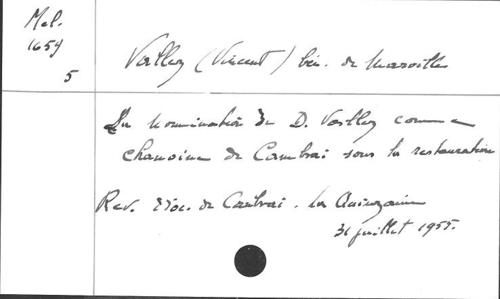 Mel.
1659
5
(Vincent) bén. de Maroilles
La nomination de D. comme
chanoine de Cambrai sous la restauration
Rev. Dioc. de Cambrai. La Quinzaine
31 juillet 1955.